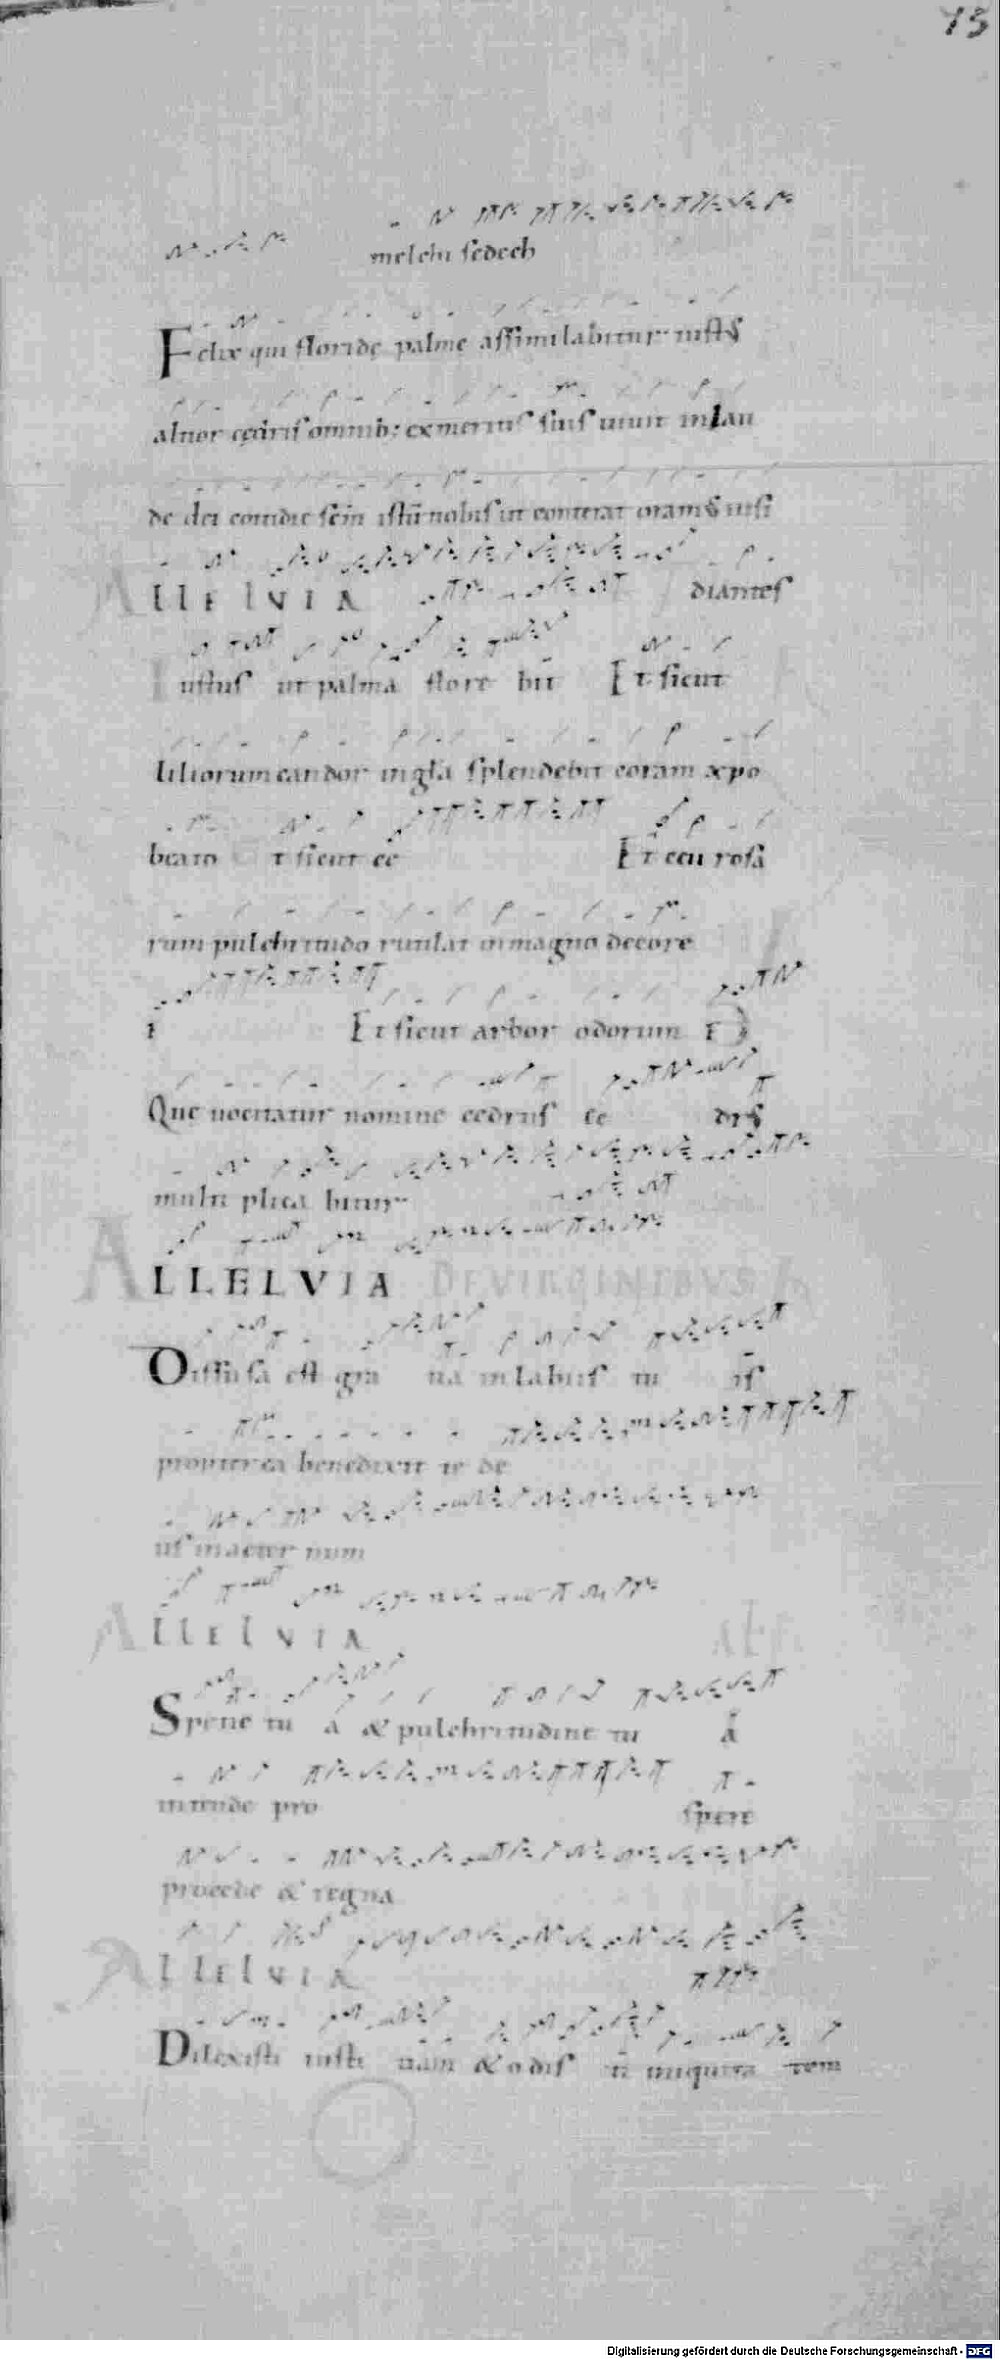 73
melchi sedech
Felix qui floride palme assimilabitur iust9
altior cedris omnib: ex meritis suis uiuit in lau
de dei cottidie sem istū nobis ut conterat oram9 uisi
ALLELVIA diantes
Iustus ut palma flore bit Et sicut
liliorum candor in gla splendebit coram xpo
beato t sicut ce Et ceu rosa
rum pulchritudo rutilat in magno decore
Et sicut arbor odorum
Que uocitatur nomine cedrus ce dr9
multi plica bitur
ALLELVIA DE VIRGINIBVS
Diffusa est gra tia in labiis tu is
propterea benedixit te de
us in aeter num
ALLELVIA
Specie tu a & pulchritudine tu a
intende pro spere
procede & regna
ALLELVIA
Dilexisti iusti tiam & odis ti iniquita tem
Digitalisierung gefördert durch die Deutsche Forschungsgemeinschaft - DFG